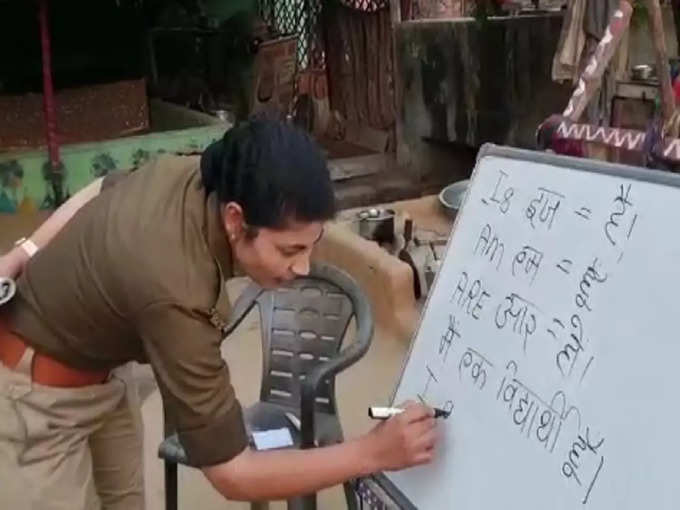 Is इज = है।
Am एम = हूँ
ARE आर = हो।
मैं एक विद्यार्थी हूँ।